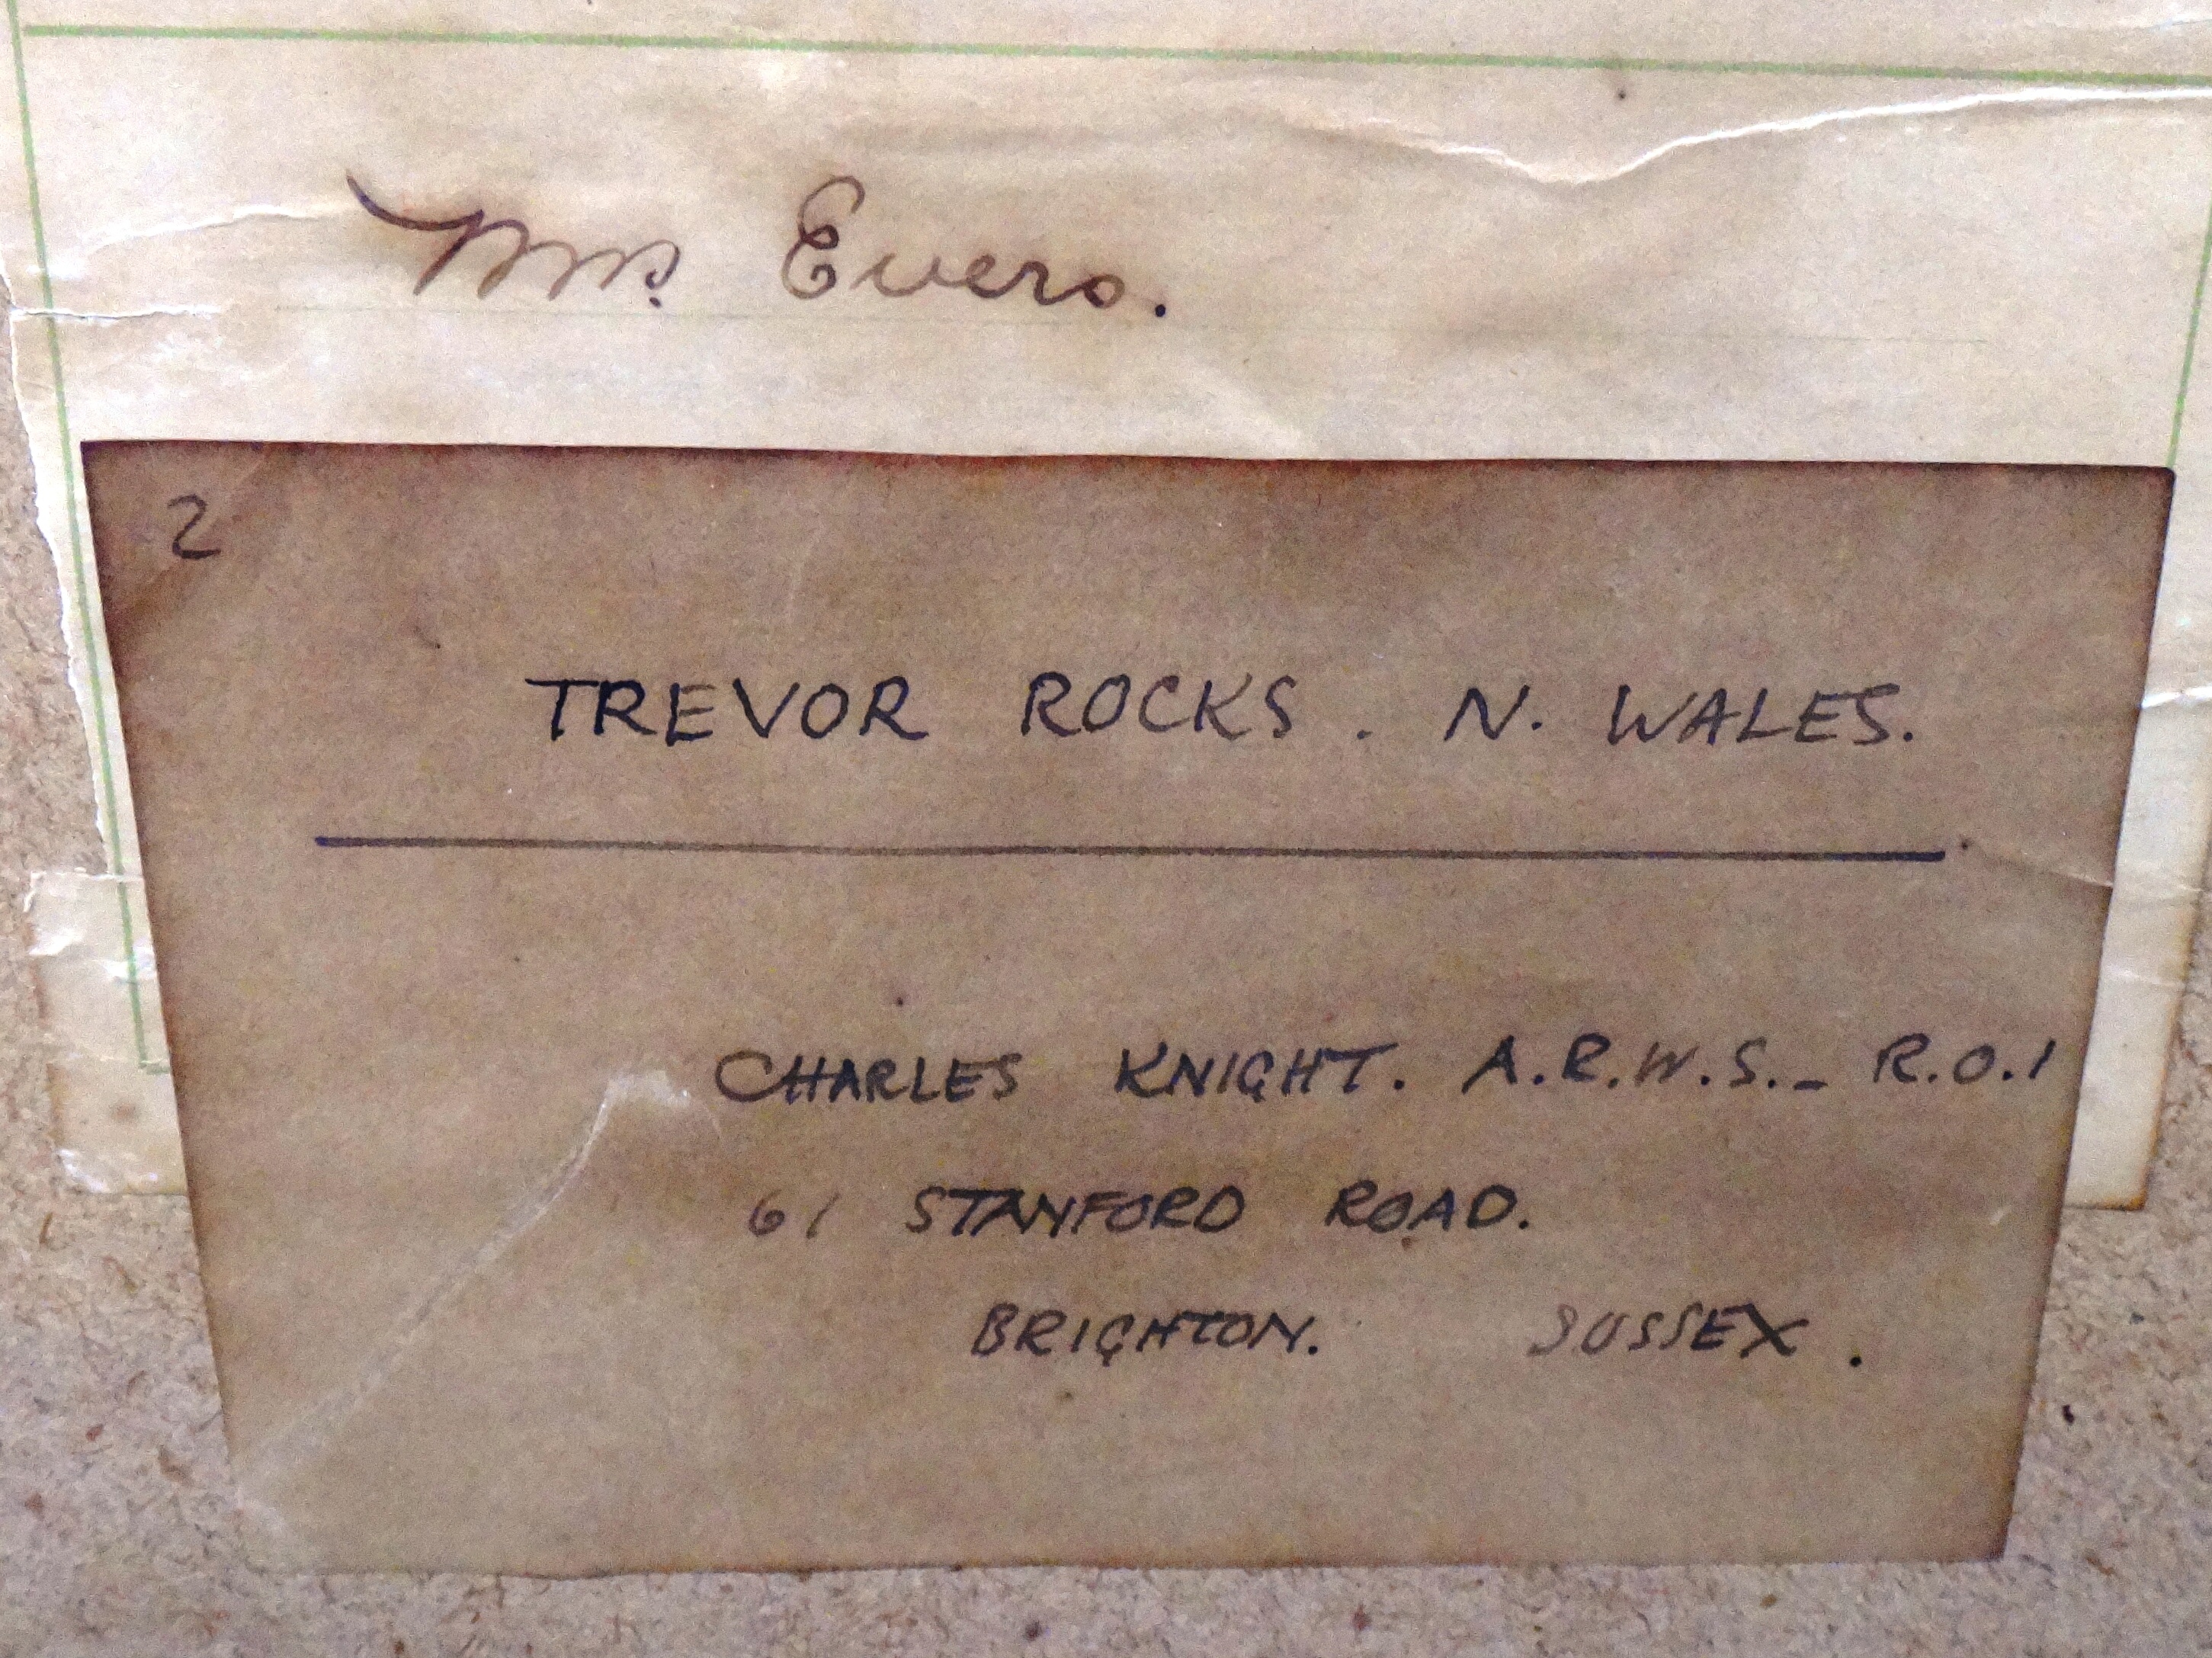 Mrs. Evers.
2
TREVOR ROCKS. N. WALES.
CHARLES KNIGHT. A.R.W.S. - R.O.I
61 STANFORD ROAD.
BRIGHTON. SUSSEX.